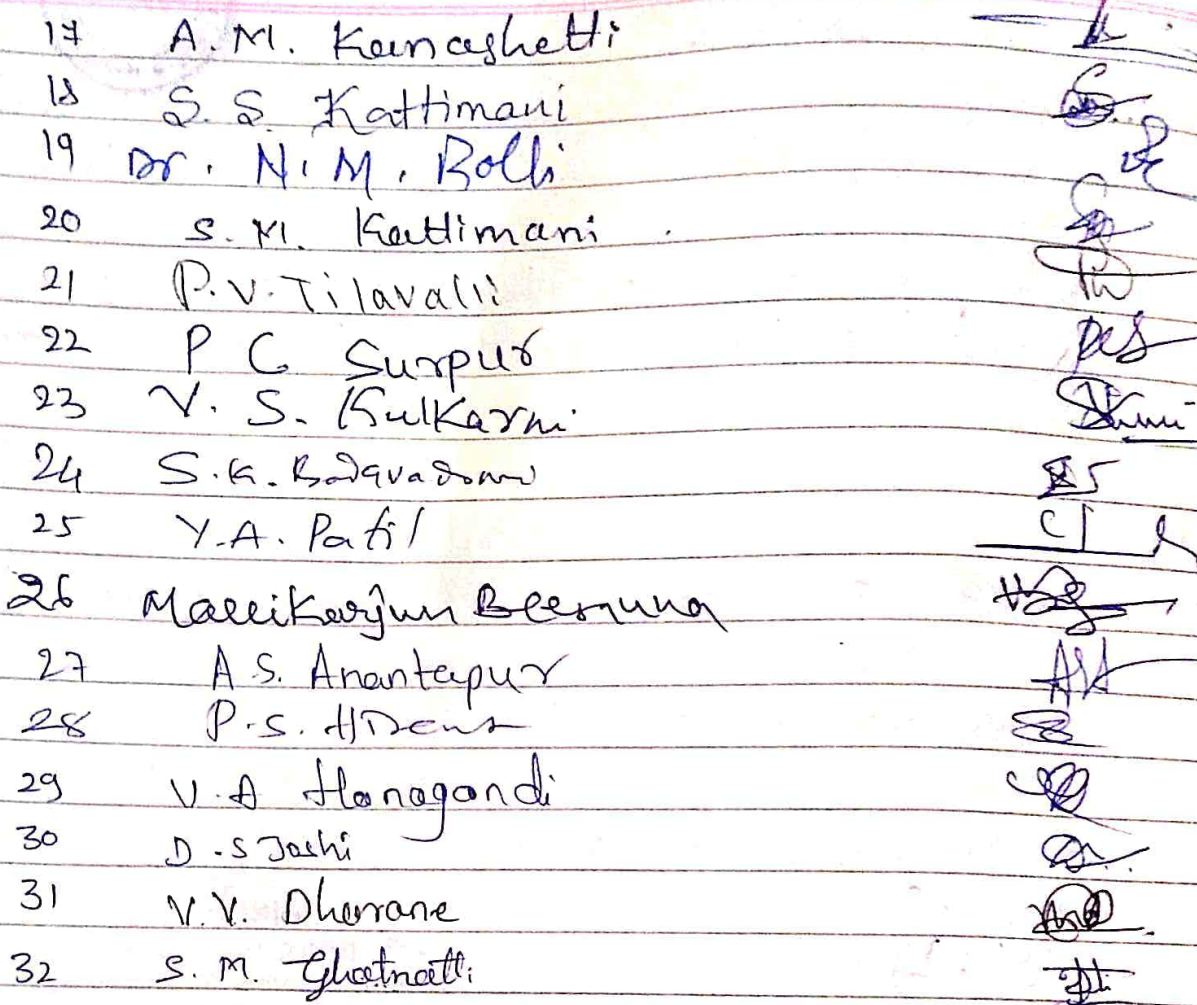 17 A. M. Kanashetti
18 S. S. Kattimani
19 Dr. N. M. Bolli
20 S. M. Kattimani
21 P. V. Tilavalli
22 P C Surpur
23 V. S. Kulkarni
24 S. K.
25 Y. A. Patil
26 Mallikarjun
27 A. S. Anantapur
28 P. S.
29 V. A Hanagandi
30 D. S Joshi
31 V. V. Dharane
32 S. M. Ghatnatti